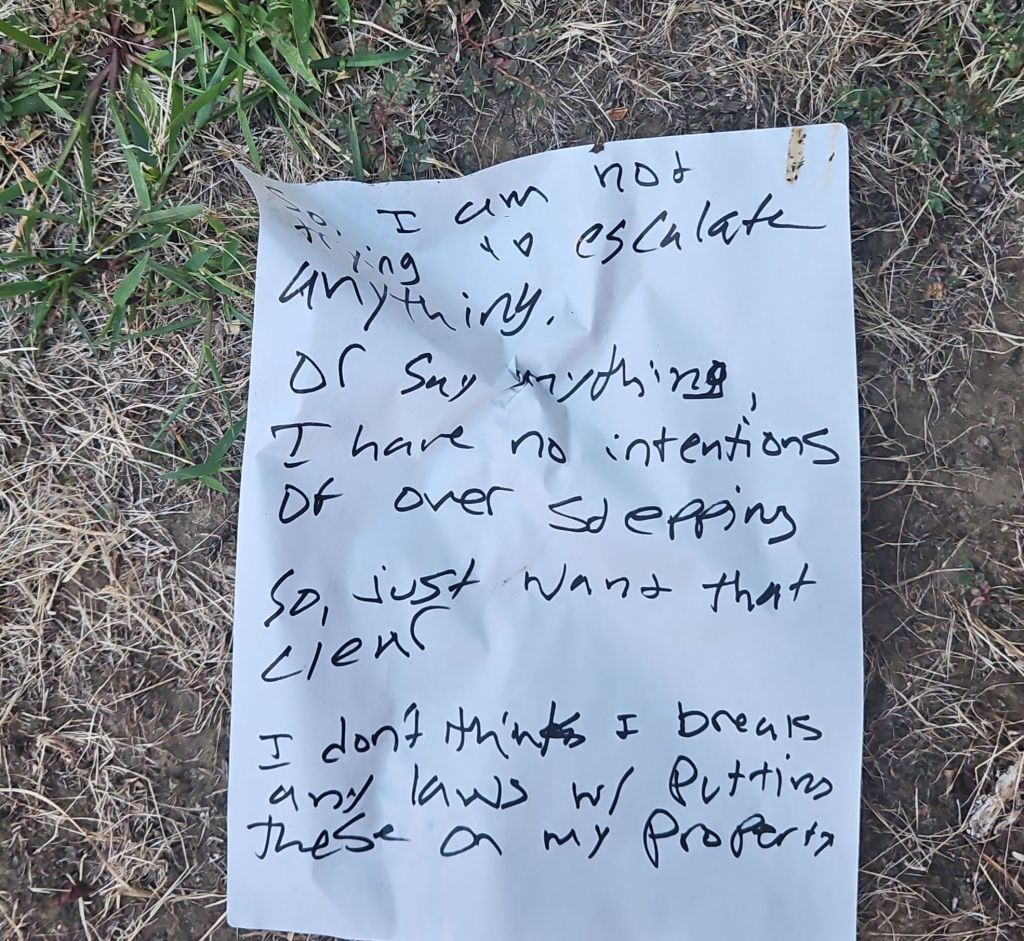 So, I am not
trying to escalate
anything.
Or say anything,
I have no intentions
of over stepping
So, just want that
clear
I don't think I break
any laws w/ putting
these on my property